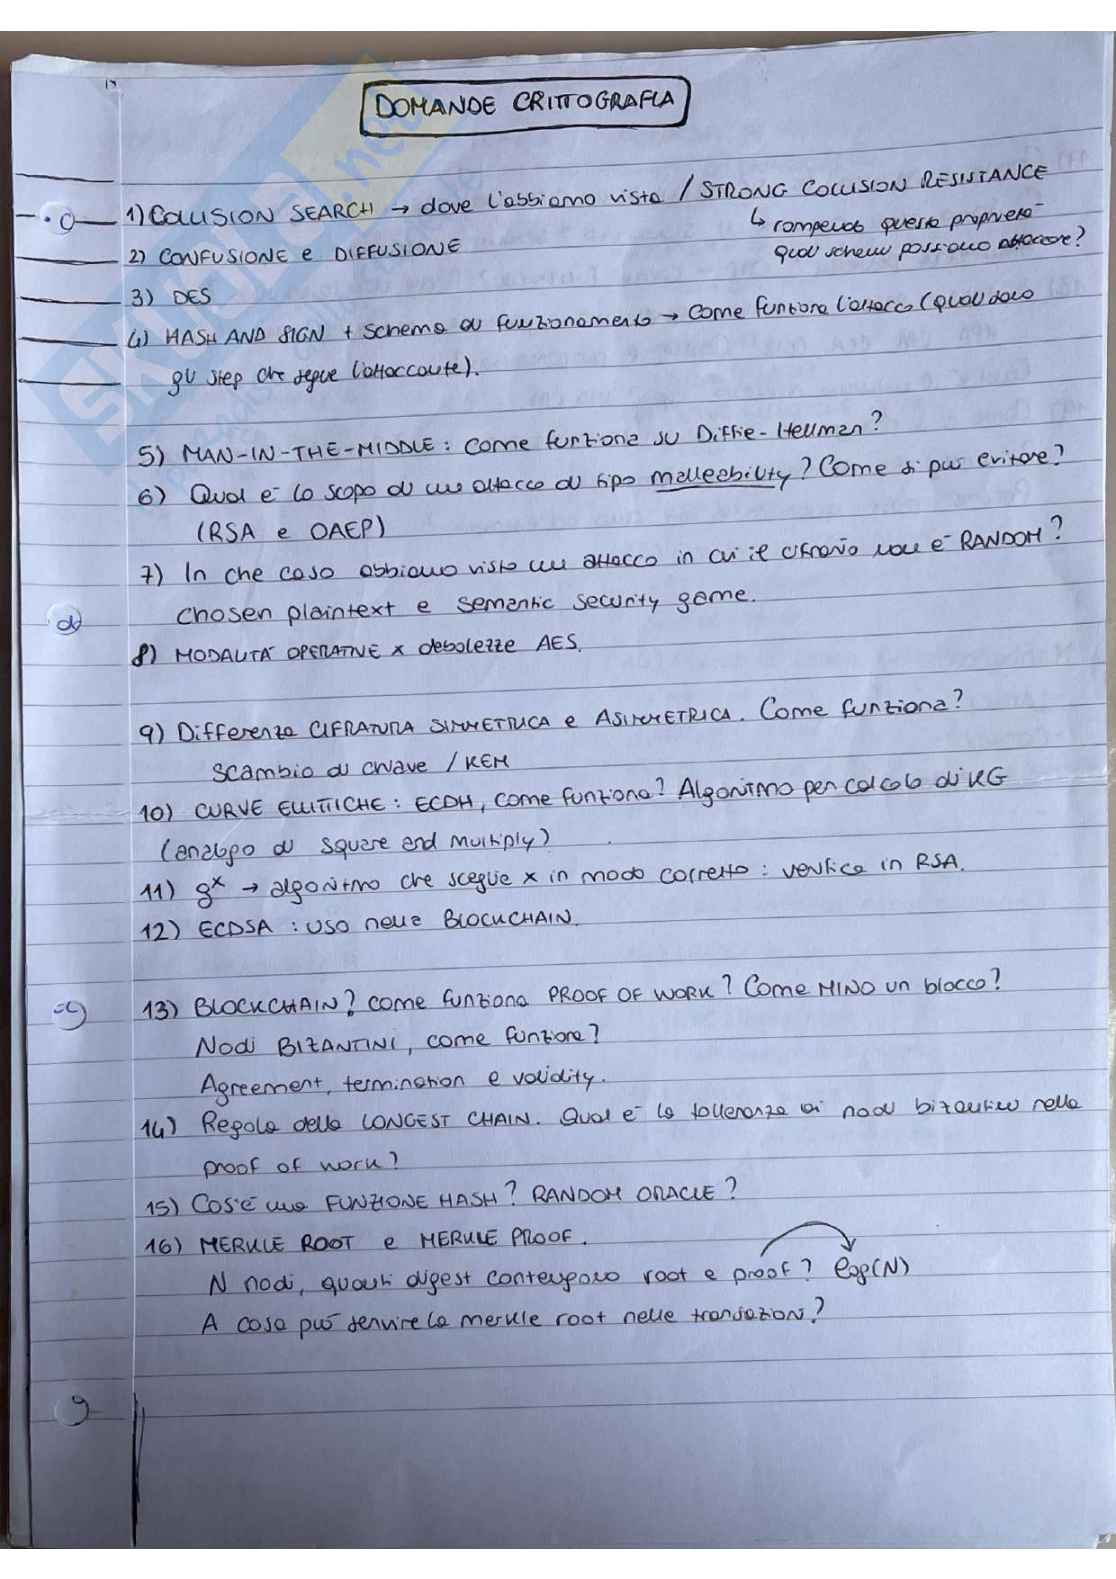 DOMANDE CRITTOGRAFIA
1) COLLISION SEARCH → dove l'abbiamo vista / STRONG COLLISION RESISTANCE
↳ rompendo questa proprietà
quali schemi possiamo attaccare?
2) CONFUSIONE e DIFFUSIONE
3) DES
4) HASH AND SIGN + schema di funzionamento → Come funziona l'attacco (quali sono
gli step che segue l'attaccante).
5) MAN-IN-THE-MIDDLE: come funziona su Diffie-Hellman?
6) Qual è lo scopo di un attacco di tipo malleability? Come si può evitare?
(RSA e OAEP)
7) In che caso abbiamo visto un attacco in cui il cifrario non è RANDOM?
chosen plaintext e semantic security game.
8) MODALITÀ OPERATIVE x debolezze AES.
9) Differenza CIFRATURA SIMMETRICA e ASIMMETRICA. Come funziona?
scambio di chiave / KEM
10) CURVE ELLITTICHE: ECDH, come funziona? Algoritmo per calcolo di KG
(analogo di square and multiply)
11) gˣ → algoritmo che sceglie x in modo corretto: verifica in RSA.
12) ECDSA: uso nelle BLOCKCHAIN.
13) BLOCKCHAIN? come funziona PROOF OF WORK? Come MINO un blocco?
Nodi BIZANTINI, come funziona?
Agreement, termination e validity.
14) Regola della LONGEST CHAIN. Qual è la tolleranza ai nodi bizantini nella
proof of work?
15) Cos'è una FUNZIONE HASH? RANDOM ORACLE?
16) MERKLE ROOT e MERKLE PROOF.
N nodi, quanti digest contengono root e proof? log(N)
A cosa può servire la merkle root nelle transazioni?